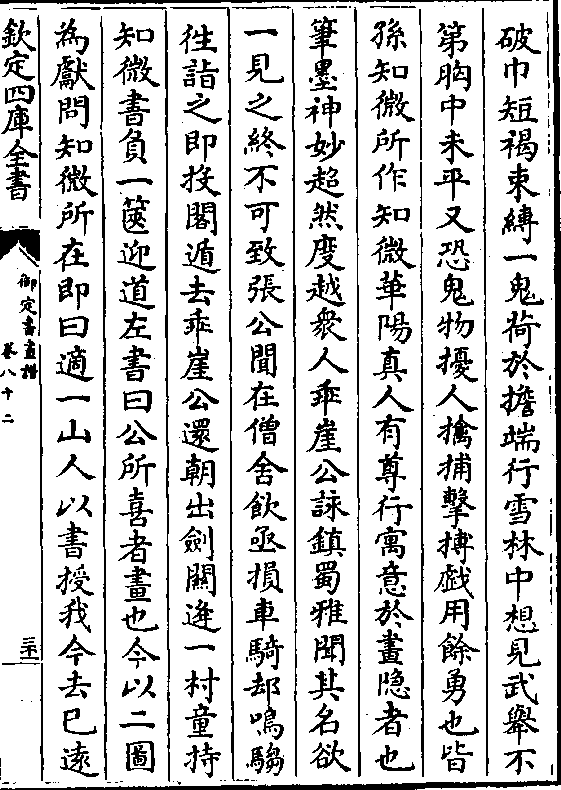 破巾短褐束縛一鬼荷於擔端行雪林中想見武舉不
第胸中未平又恐鬼物擾人擒捕擊搏戯用餘勇也皆
孫知微所作知微華陽真人有尊行寓意於畫隠者也
筆墨神妙超然度越衆人乖崖公詠鎮蜀雅聞其名欲
一見之終不可致張公聞在僧舍飲亟損車騎却鳴騶
徃詣之即投閣遁去乖崖公還朝出劍關逢一村童持
知微書負一篋迎道左書曰公所喜者畫也今以二圖
為獻問知微所在即曰適一山人以書授我今去已遠
欽定四庫全書
御定書畫譜
卷八十二
三十